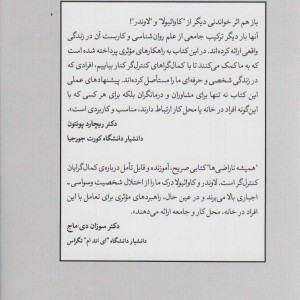 باز هم اثر خواندنی دیگر از "کاوائیولا" و "لاوندر"!
آنها بار دیگر ترکیب جامعی از علم روان‌شناسی و کاربست آن در زندگی
واقعی ارائه کرده‌اند. در این کتاب به راهکارهای مؤثری پرداخته شده است
که به ما کمک می‌کنند تا با کمال‌گراهای کنترل‌گر کنار بیاییم، افرادی که
در زندگی شخصی و حرفه‌ای ما را مستأصل کرده‌اند. پیشنهادهای عملی
این کتاب نه تنها برای مشاوران و درمانگران بلکه برای هر کسی که با
این‌گونه افراد در خانه یا محل کار ارتباط دارند، مناسب و کاربردی است».
دکتر ریچارد پونتون
دانشیار دانشگاه کورت جورجیا
"همیشه ناراضی‌ها" کتابی صریح، آموزنده و قابل تأمل درباره‌ی کمال‌گرایان
کنترل‌گر است. لاوندر و کاواثیولا درک ما را از اختلال شخصیت وسواسی ـ
اجباری بالا می‌برند و در عین حال، راهبردهای مؤثری برای تعامل با این
افراد در خانه، محل کار و جامعه ارائه می‌دهند».
دکتر سوزان دی-ماج
دانشیار دانشگاه "ای اند ام" تگزاس